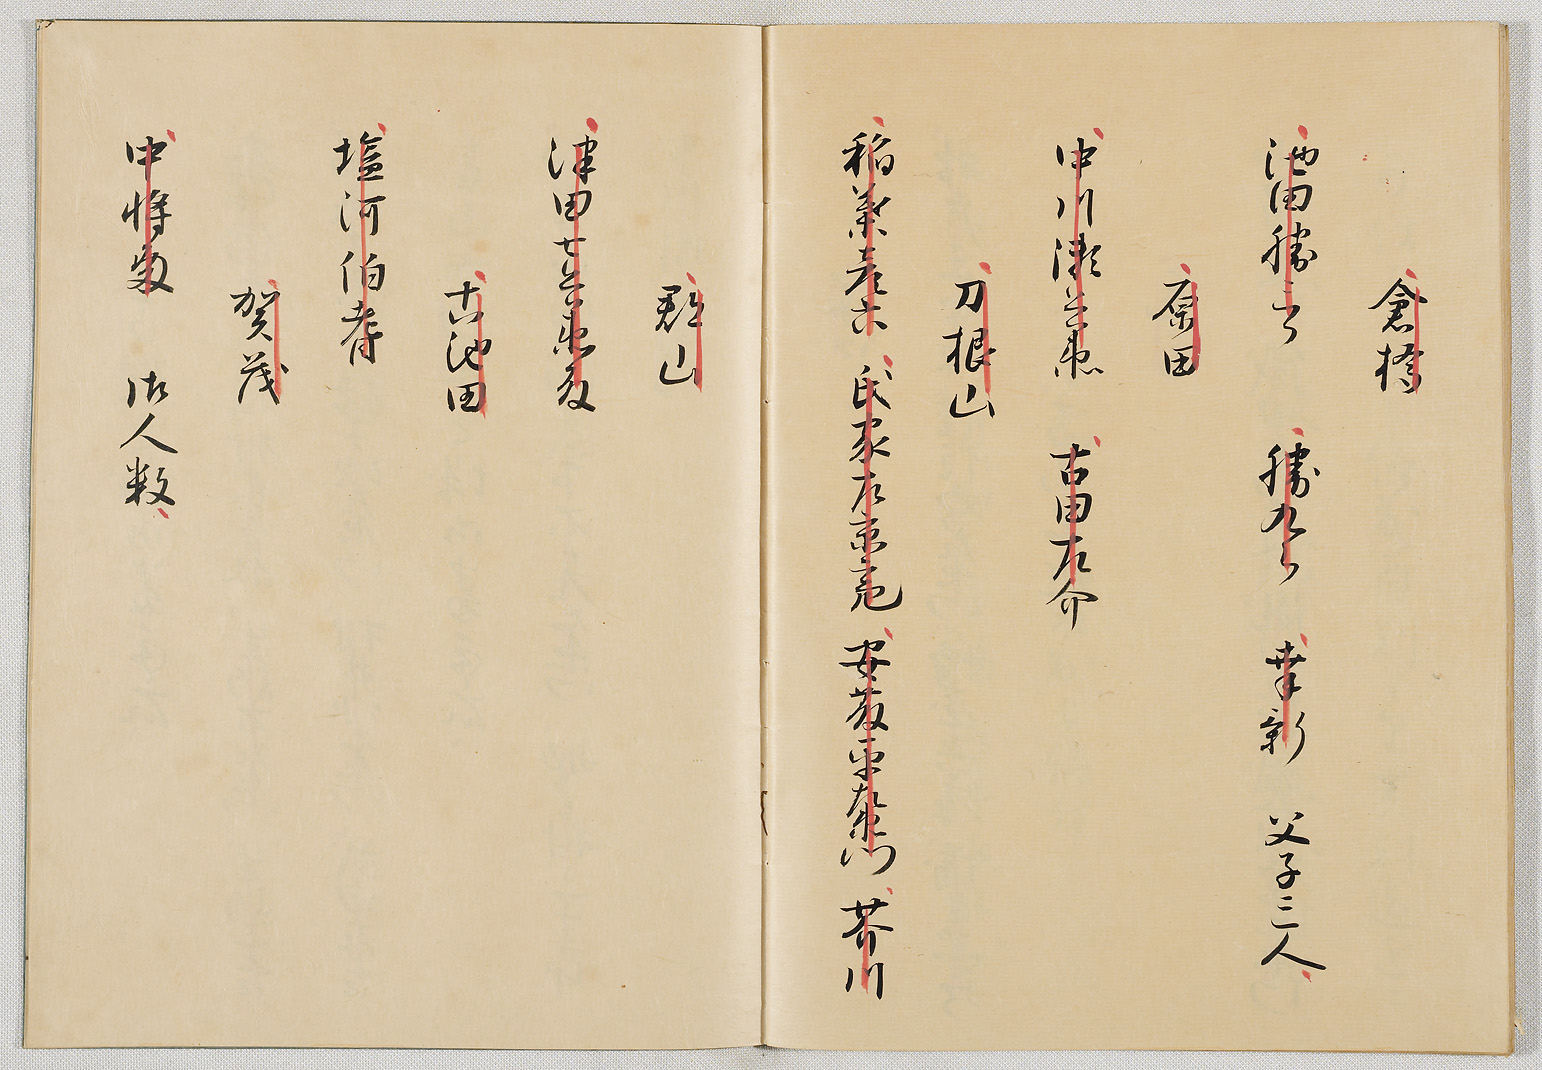 倉橋
池田勝三郎 勝九郎 幸新 父子三人
原田
中川瀬兵衛 古田左介
刀根山
稲葉彦六 氏家左京亮 安藤平左衛門 芥川
郡山
津田七兵衛殿
古池田
塩河伯耆
賀茂
中将殿 御人数